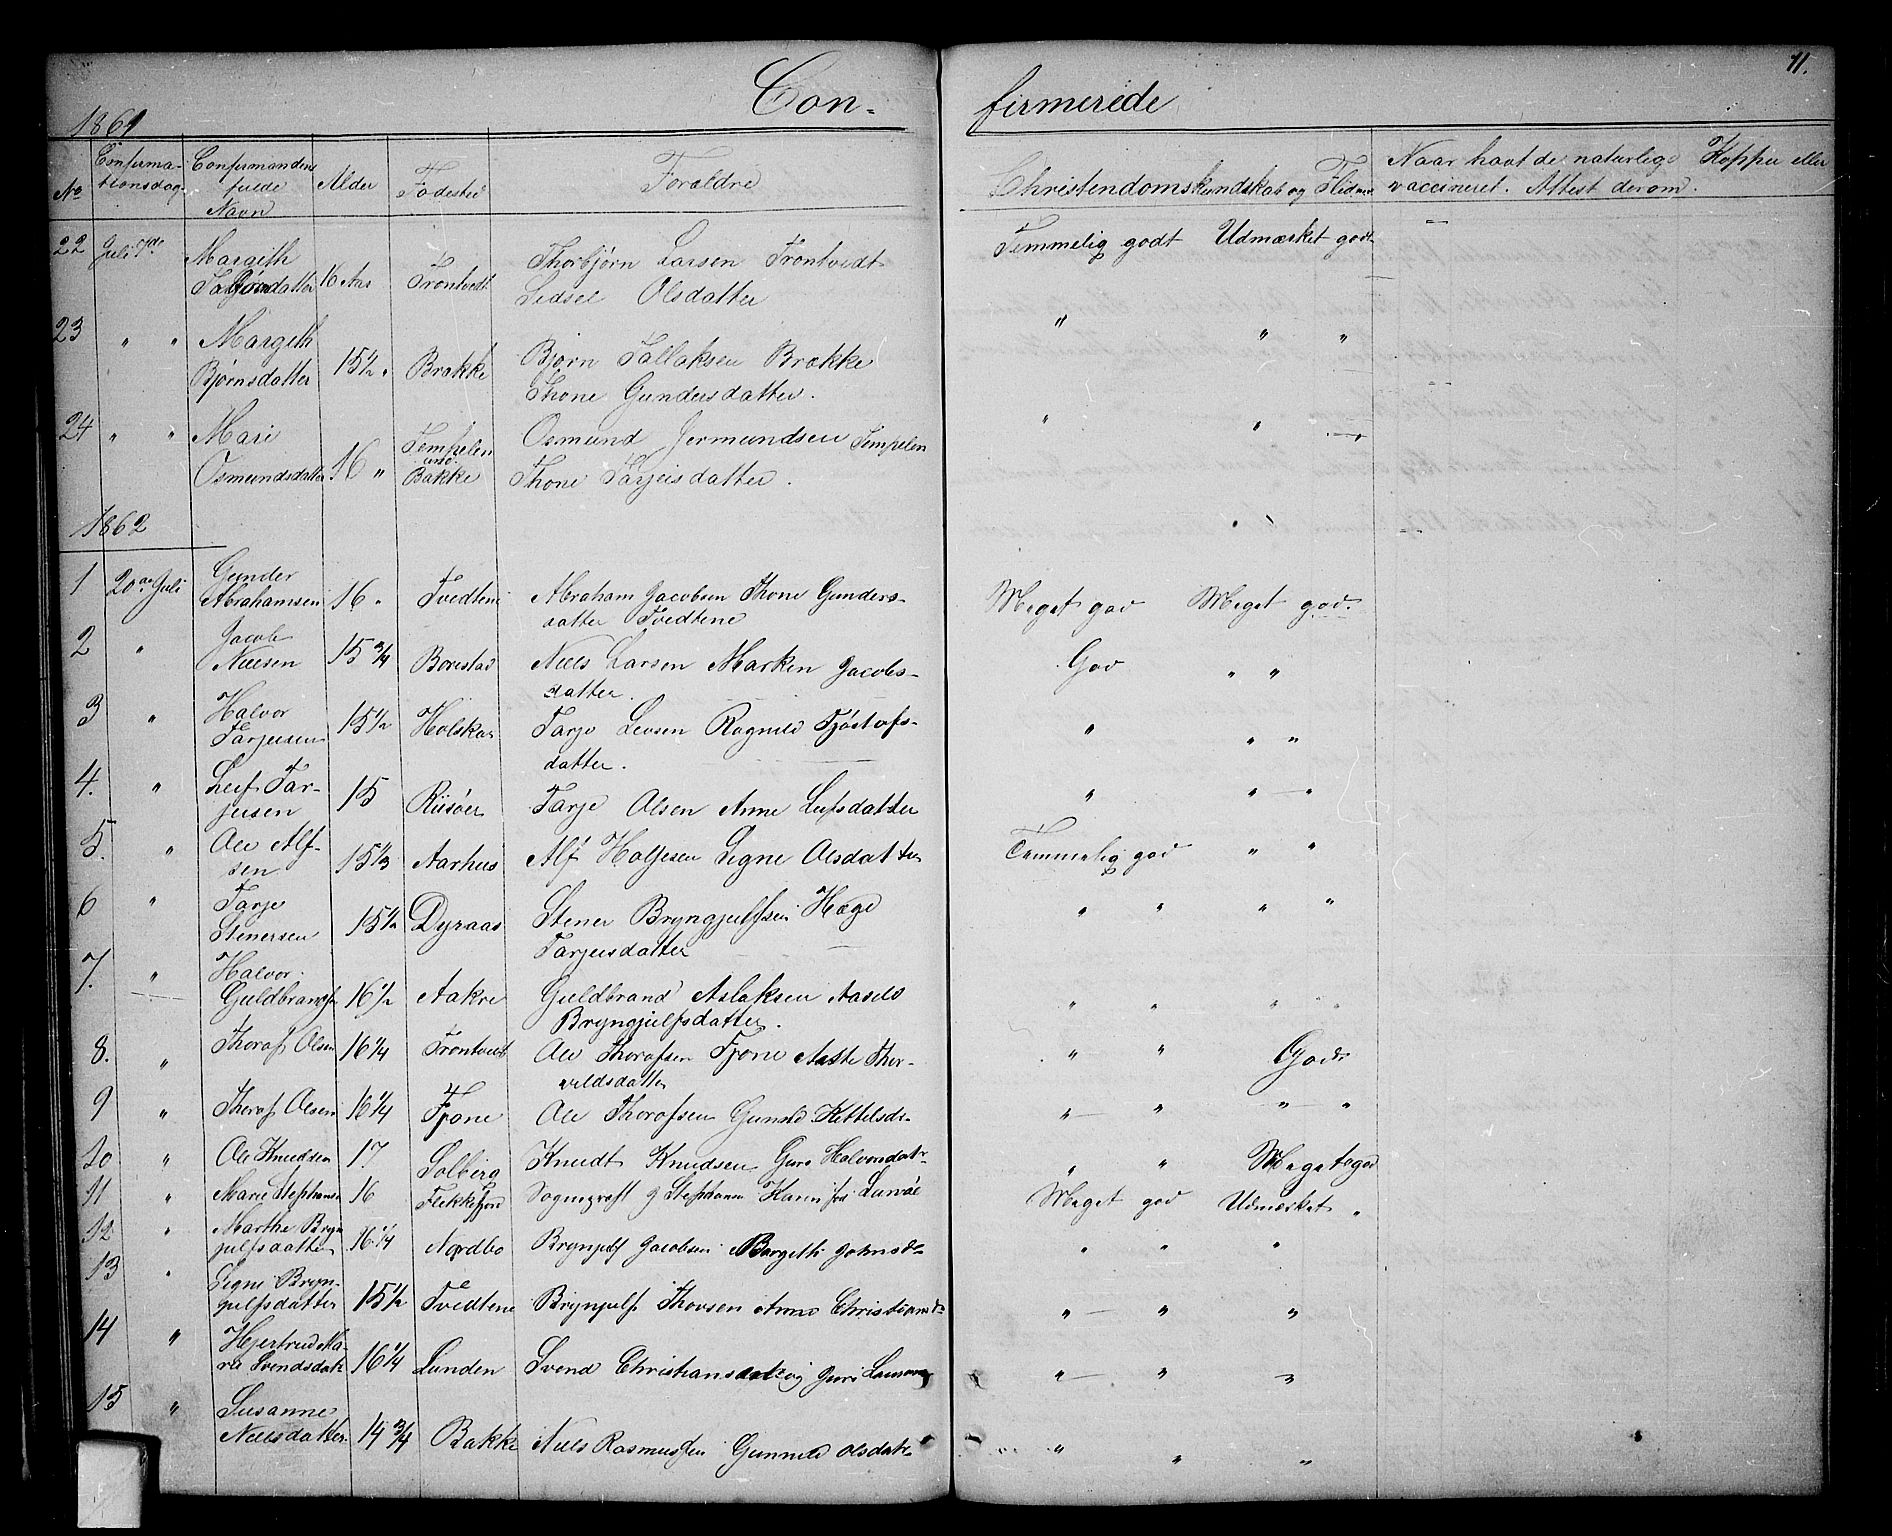 1861 Con- firmerede 11.
No Confirma-tionsdag Confirmandens fulde Navn Alder Fødested Forældre Christendomskundskab og Flid Naar havt de naturlige Kopper eller vaccineret. Attest derom.
22 Juli Margith 16 Aar Trontvedt Thorbjørn Larsen Trontvedt Temmelig godt Udmærket godt
Sidsel Olsdatter
23 " " Margith Bjørnsdatter 15 1/2 " Brakke Bjørn Tallaksen Brakke " " "
Thone Gundersdatter.
24 " " Mari Osmundsdatter 16 " Tempelen und. Bakke Osmund Jermundsen Tempelen " " "
Thone Tarjeisdatter.
1862
1 20de Juli Gunder Abrahamsen 16 " Tvedtene Abraham Jacobsen Thone Gunders- Meget god Meget god.
datter Tvedtene
2 " Jacob Nielsen 15 3/4 Borestad Niels Larsen Marken Jacobs- God " "
datter.
3 " Halvor Tarjeisen 15 1/2 Holskar Tarje Levsen Ragnild Tjøstofs- " " "
datter.
4. " Leif Tar-jeisen 15 Riisøen Tarje Olsen Anne Leifsdatter " " "
5. " Ole Alf-sen 15 1/3 Aarhus Alf Holjesen Signe Olsdatter Temmelig god " "
6 " Tarje Stenersen 15 1/2 Dyraas Stener Bryngjulfsen Hæge " " " "
Tarjeisdatter
7. " Halvor Guldbrands. 16 1/2 Aakre Guldbrand Aslaksen Aasild " " " "
Bryngjulfsdatter.
8. " Thoraf Olsen 16 1/4 Trontvedt Ole Thorafsen Fjone Aaste Thor- " " Godt
vildsdatter
9 " Thoraf Olsen 16 1/4 Fjone Ole Thorafsen Gunild Kittelsdr " " " "
10 " Ole Knudsen 17 Solberg Knudt Knudsen Guro Halvorsdatr " " Meget god
11 " Marie Stephansen 16 Flekkefjord Sogneprest J Stephansen Karen Meget god Udmærket "
12 " Marthe Bryn-julfsdatter 16 1/4 Nordbo Brynjulf Jacobsen Bergith Johnsdr " " "
13 " Signe Bryn-julfsdatter 15 1/2 Tvedtene Brynjulf Thovsen Anne Christiansdr " " "
14 " Hjertrud Ma-ria Svendsdatr 16 1/4 Lunden Svend Christiansen og Guro " " "
15 " Susanne Nielsdatter. 14 3/4 Bakke Niels Rasmussen Gunnild Olsdatr " " "